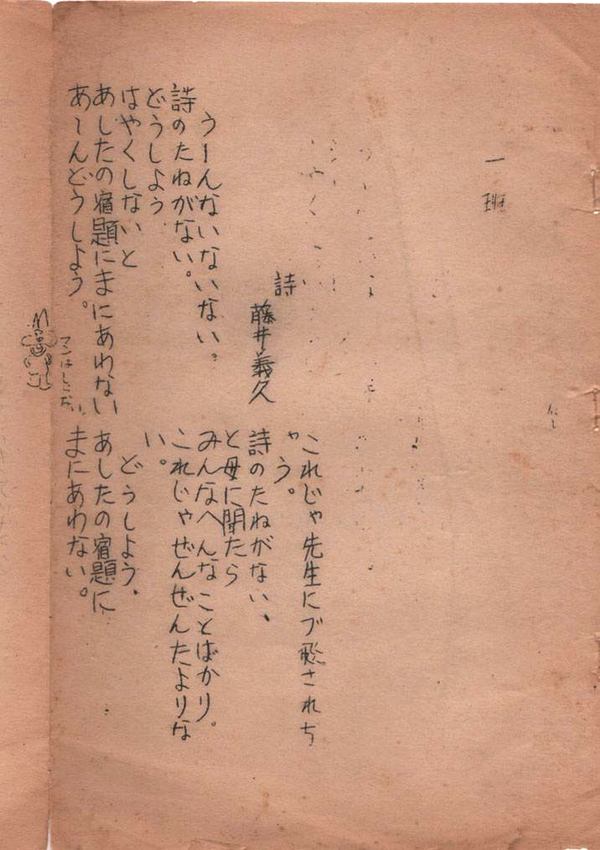 一班
詩
藤井義久
うーんないないない。
詩のたねがない。
どうしよう
はやくしないと
あしたの宿題にまにあわない
あーんどうしよう。
これじゃ先生にブ飛されち
ゃう。
詩のたねがない、
と母に聞たら
みんなへんなことばかり。
これじゃぜんぜんたよりな
い。
どうしよう、
あしたの宿題に
まにあわない。